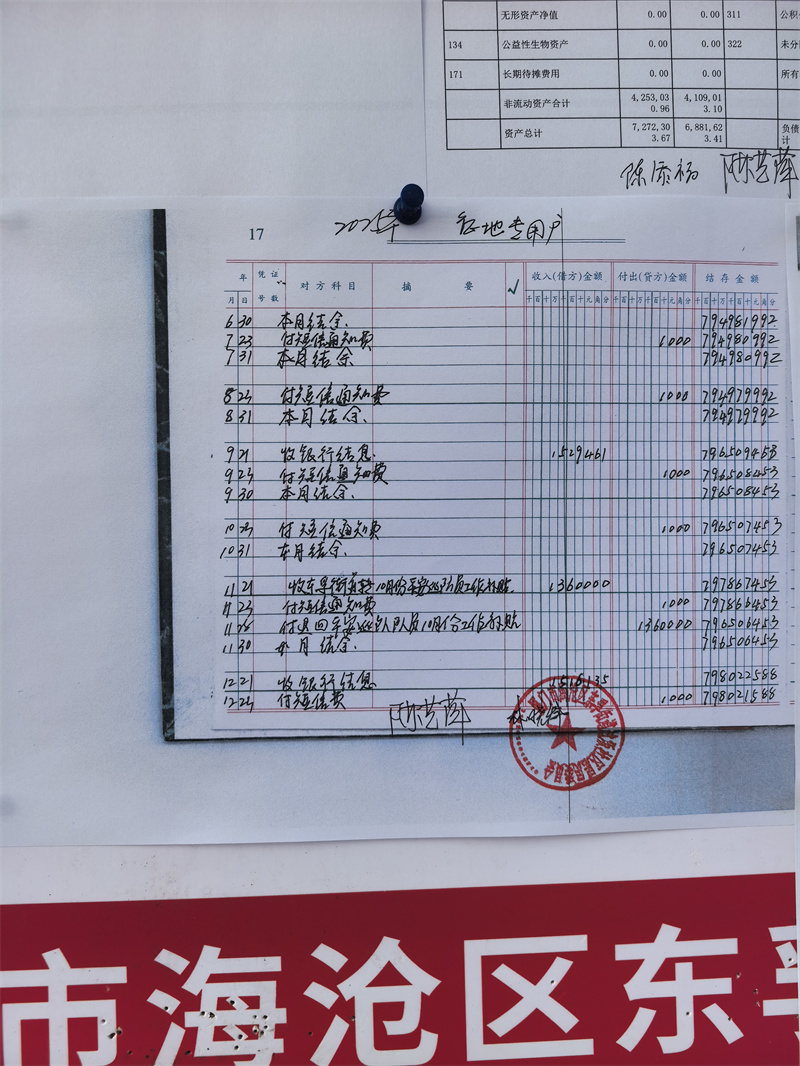 无形资产净值 0.00 0.00 311 公积
134 公益性生物资产 0.00 0.00 322 未分
171 长期待摊费用 0.00 0.00 所有
非流动资产合计 4,253,030.96 4,109,013.10
资产总计 7,272,303.67 6,881,623.41 负债 计
陈添福
17 2025年 征地专用户
年 凭证 对方科目 摘要 √ 收入(借方)金额 付出(贷方)金额 结存金额
月 日 号数 千百十万千百十元角分 千百十万千百十元角分 千百十万千百十元角分
6 30 本月结余. 794981992
7 23 付短信通知费 1000 794980992
7 31 本月结余 794980992
8 23 付短信通知费 1000 794979992
8 31 本月结余. 794979992
9 21 收银行结息. 1529461 796509453
9 23 付短信通知费 1000 796508453
9 30 本月结余. 796508453
10 23 付短信通知费 1000 796507453
10 31 本月结余. 796507453
11 21 收东孚街 10月份平安 队员工作补贴 1360000 797867453
11 23 付短信通知费 1000 797866453
11 28 付退回平安 队员10月份工作补贴 1360000 796506453
11 30 本月结余. 796506453
12 21 收银行结息 1516135 798022588
12 23 付短信费 1000 798021588
市海沧区东孚